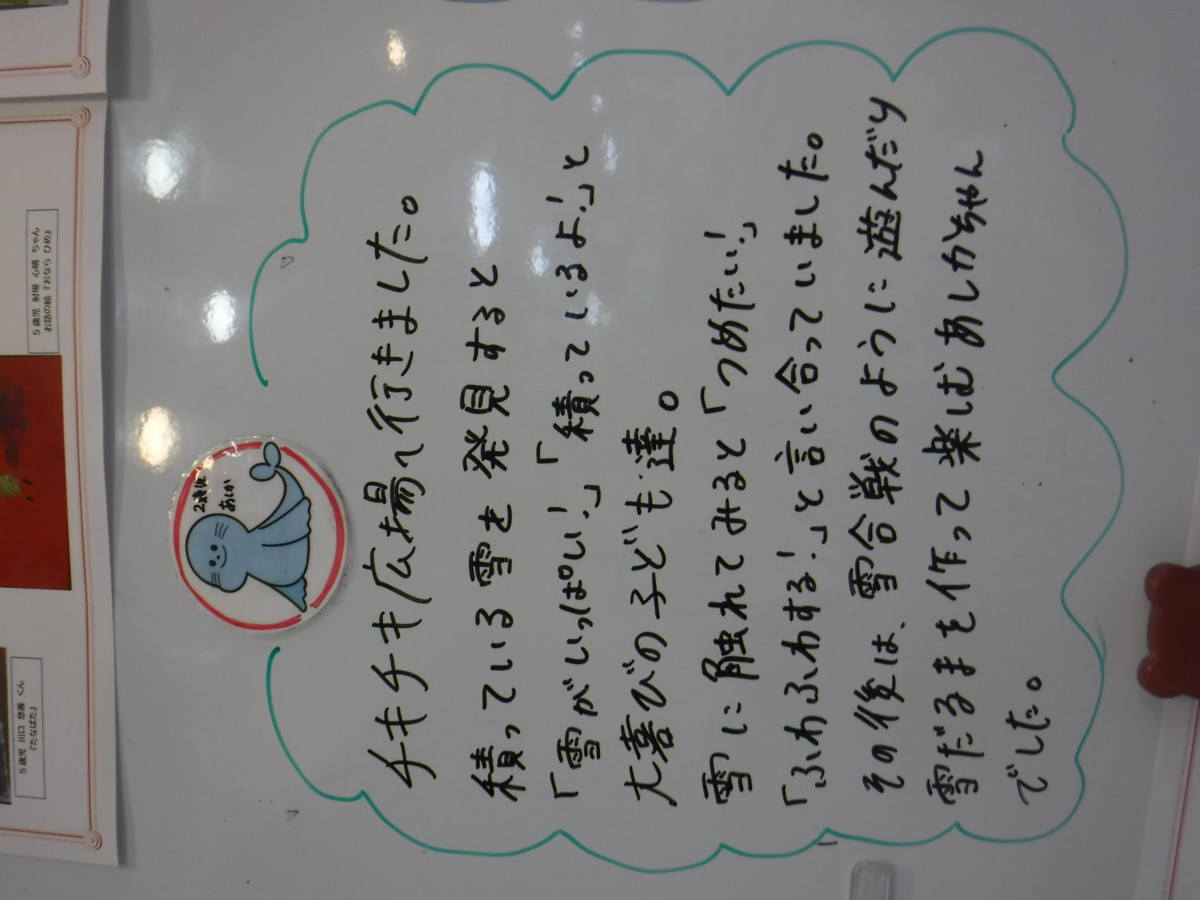 2歳児
あしか
チキチキ広場へ行きました。
積っている雪を発見すると
「雪がいっぱい!」「積っているよ!」と
大喜びの子ども達。
雪に触れてみると「つめたい!」
「ふわふわする!」と言い合っていました。
その後は、雪合戦のように遊んだり
雪だるまを作って楽しむあしかちゃん
でした。
5歳児 射場 心晴 ちゃん
お話の絵『おなら ひめ』
5歳児 川口 慈善 くん
『たなばた』